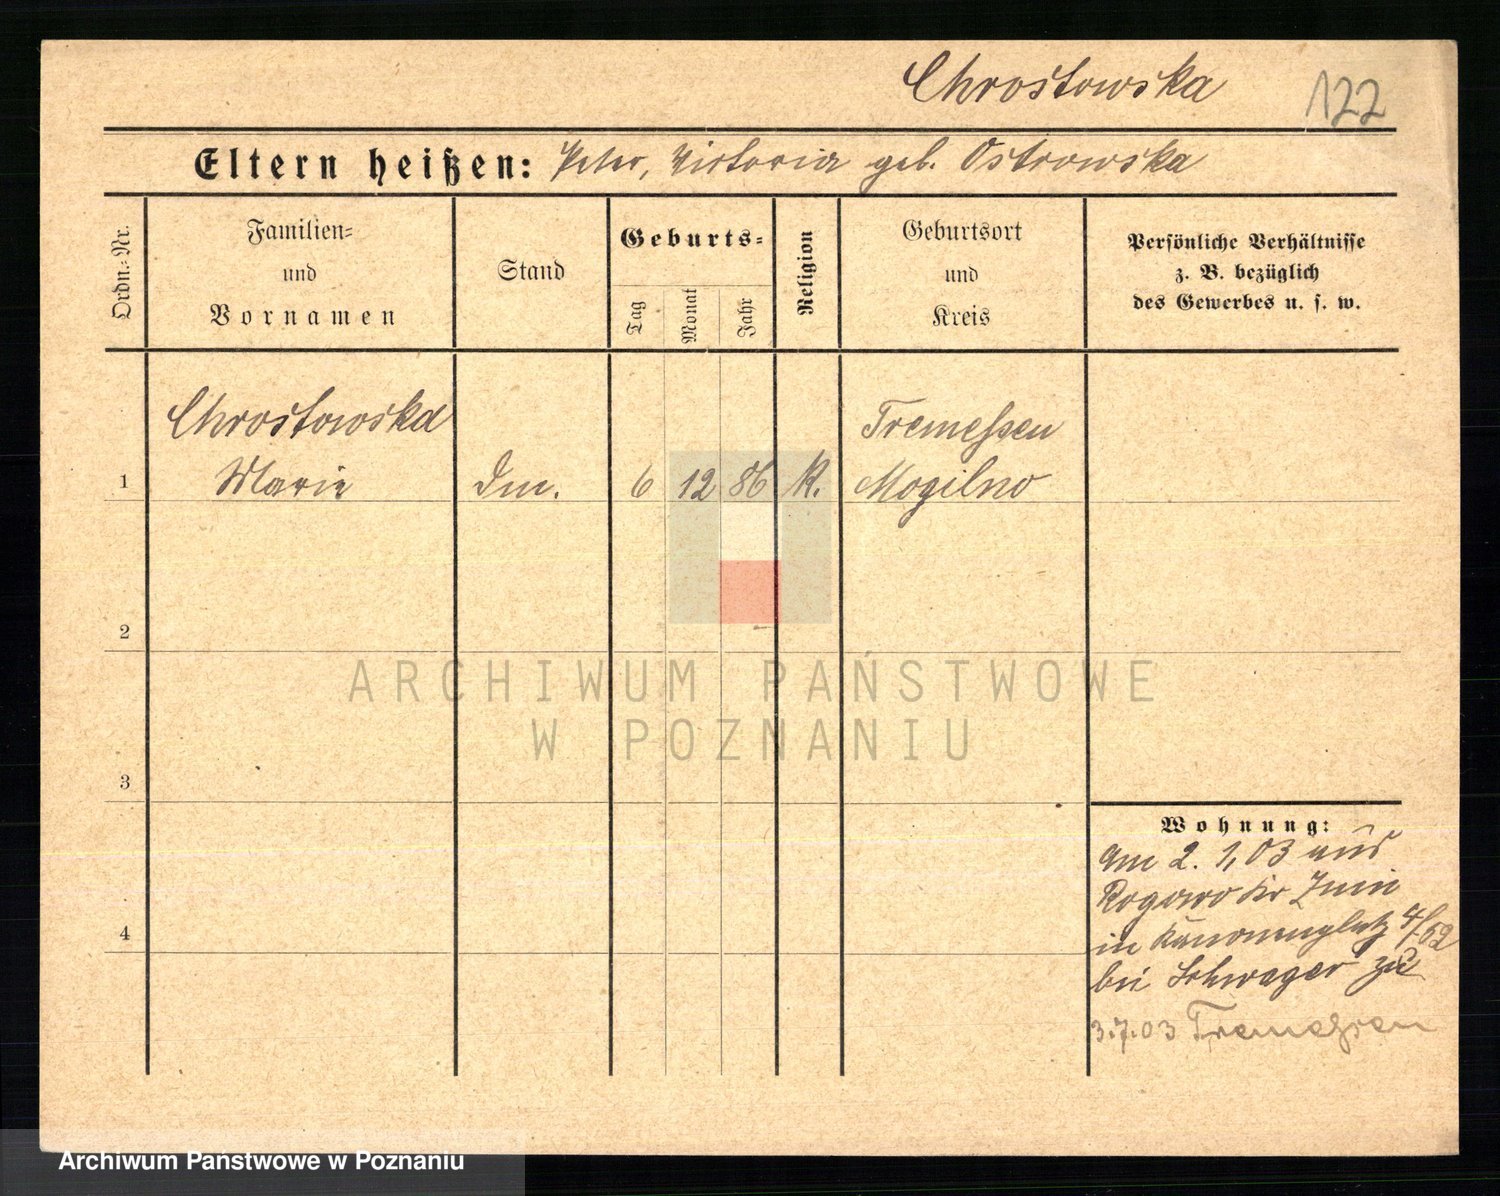 Chrostowska
122
Eltern heißen: Peter, Victoria geb. Ostrowska
Ordn.-Nr.
Familien-
und
Vornamen
Stand
Geburts-
Tag
Monat
Jahr
Religion
Geburtsort
und
Kreis
Persönliche Verhältnisse
z. B. bezüglich
des Gewerbes u. s. w.
Chrostowska
Tremessen
1 Marie Dm. 6 12 86 K. Mogilno
2
ARCHIWUM PAŃSTWOWE
W POZNANIU
3
Wohnung:
Am 2. 1, 03 aus
Rogowo Kr Znin
4
in Kanonenplatz 4/
bei Schwager zu
3.7.03 Tremessen
Archiwum Państwowe w Poznaniu